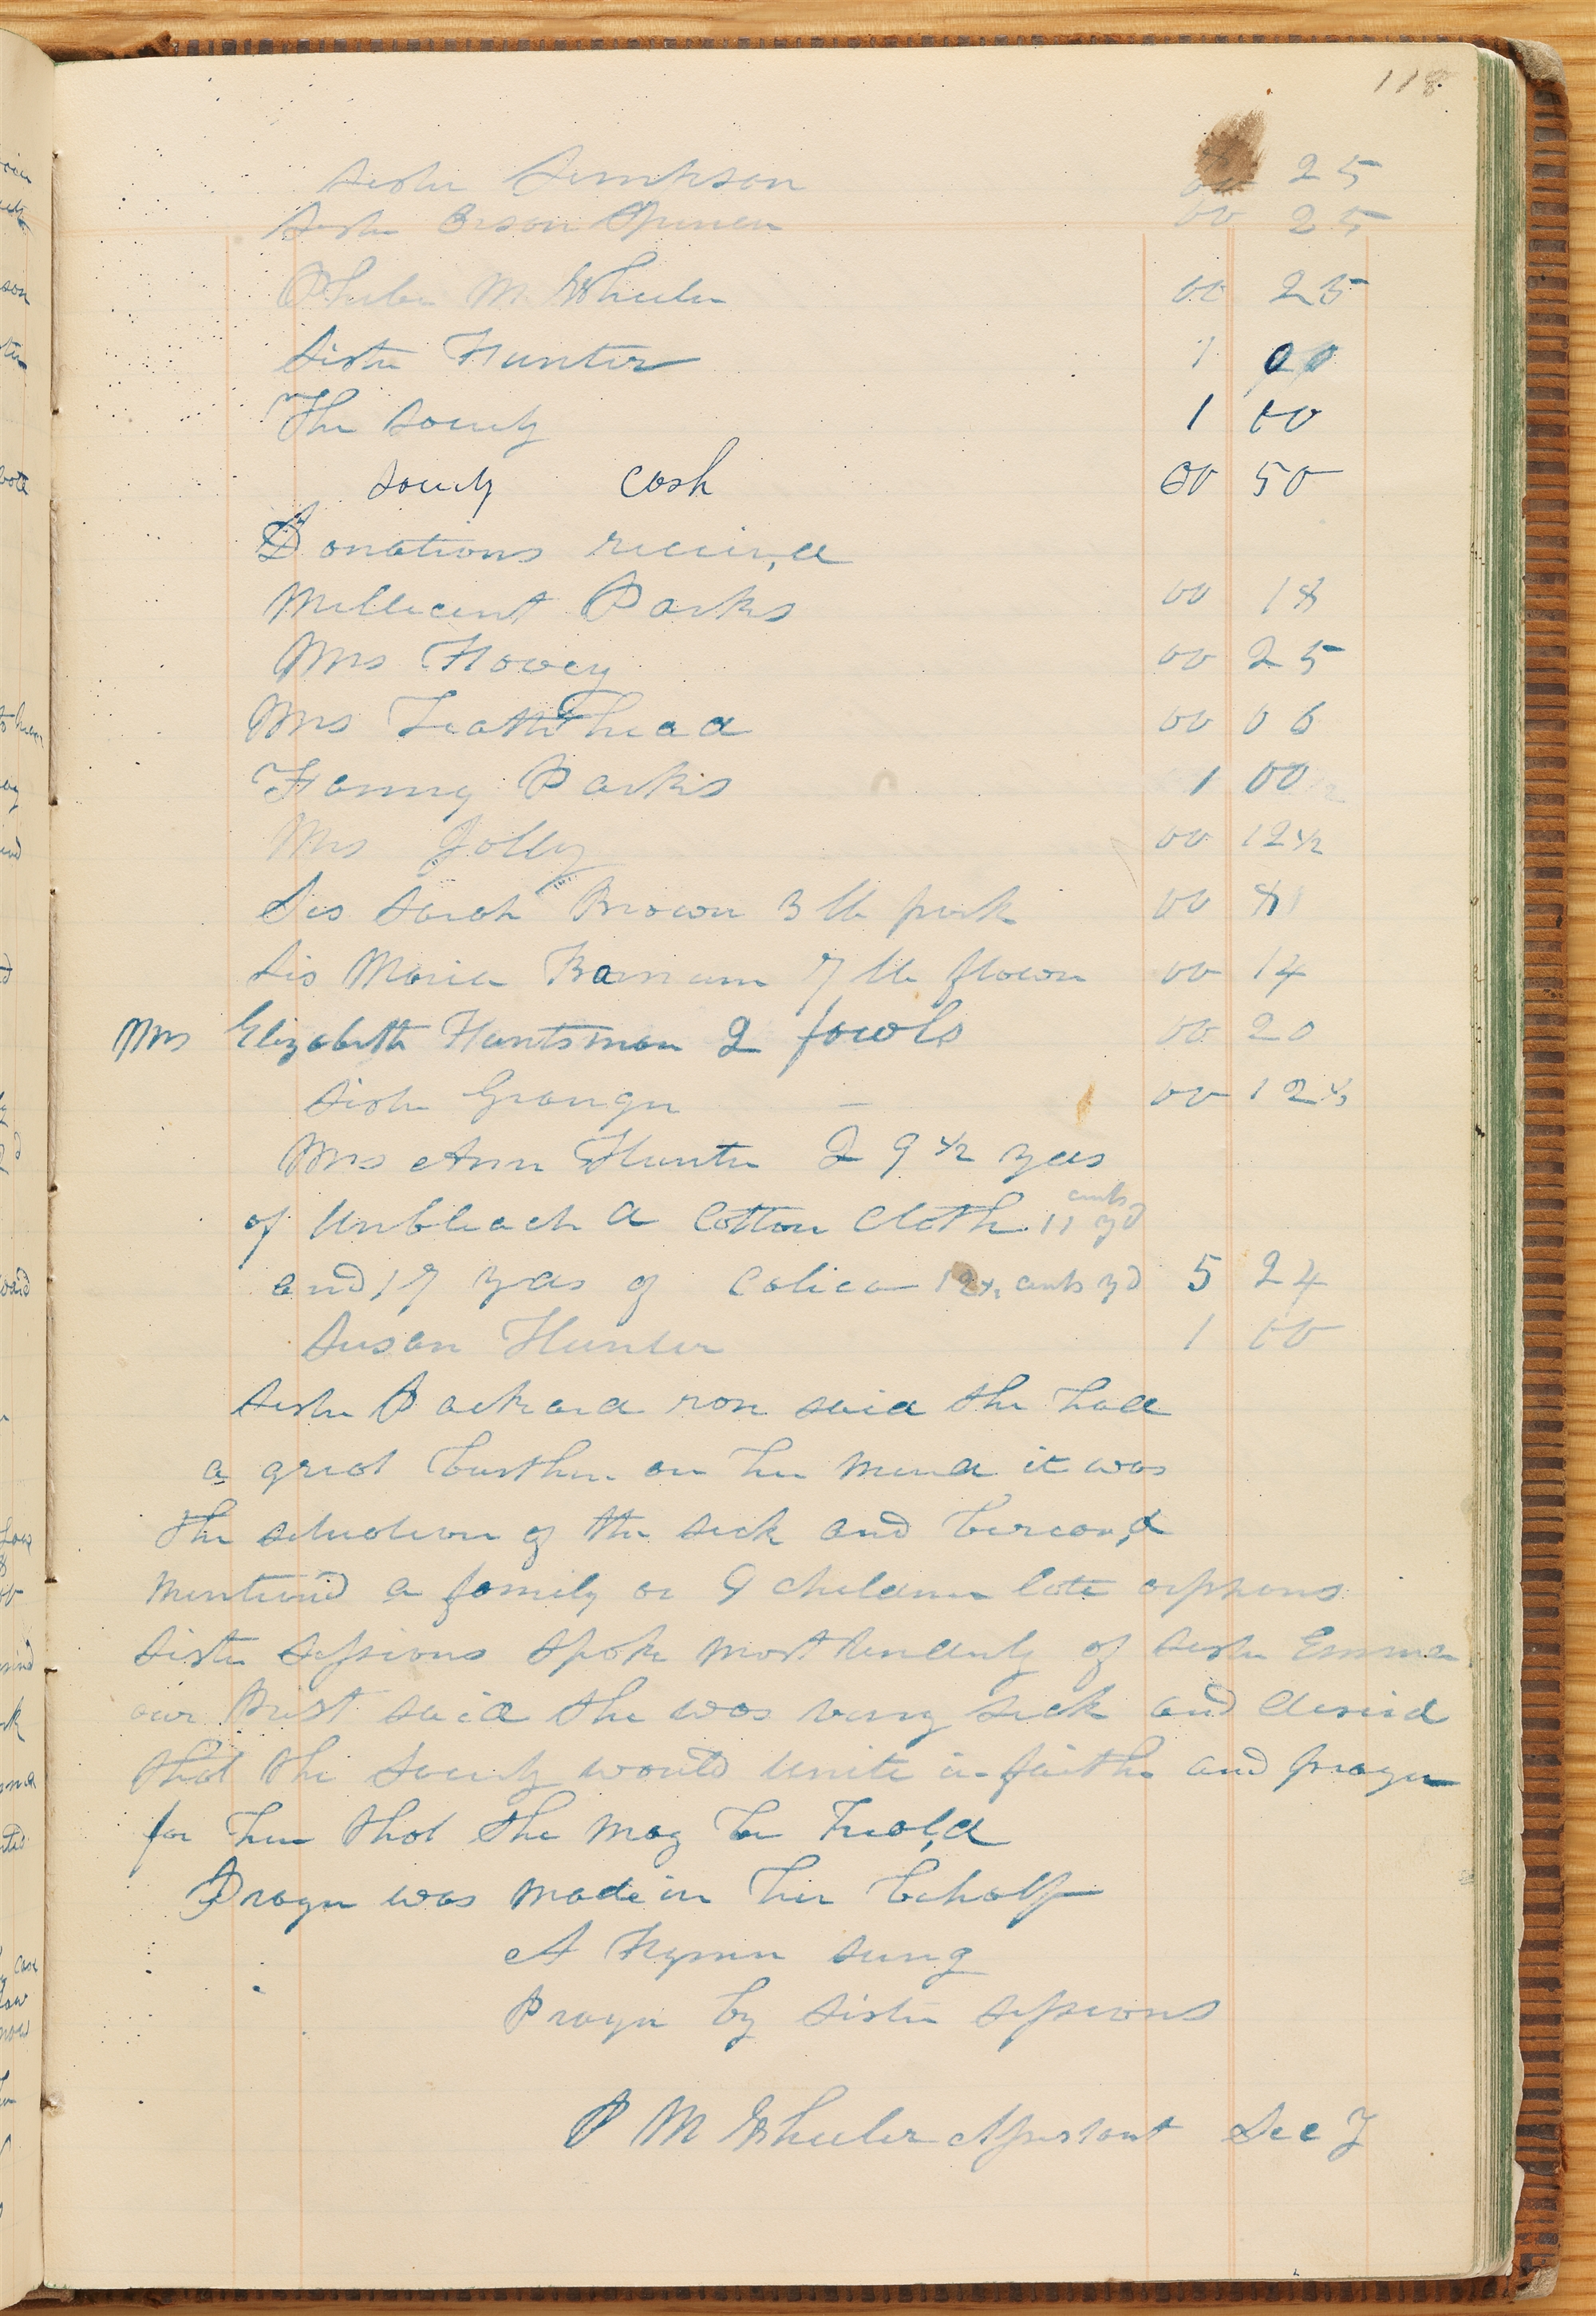 118
Sister Simkson 00 25
Sister Orson Spencer 00 25
Phebe M. Wheeler 00 25
Sister Hunter 1 00
The Society 1 00
Society cash 00 50
Donations receiv,d
Mellecent Parks 00 18
Mrs Hovey 00 25
Mrs Leathhead 00 06
Fanny Parks 1 00
Mrs Jolly 00 12 1/2
Sis Sarah Brown 3 lb pork 00
Sis Maria Barnum 7 lb flower 00 14
Mrs Elizabeth Huntsman 2 fowls 00 20
Sister Granger — 00 12 1/2
Mrs Ann Hunter 29 1/2 yds
of Unbleachd Cotton Cloth 11 cents yd
and 17 yds of Calico 12 1/2 cents yd 5 24
Susan Hunter 1 00
Sister Packard rose said she had
a great burthen on her mind it was
the situation of the sick and bereav,d
Mentioned a family of 9 children late orphans
Sister Sessions spoke most tenderly of Sister Emma
our Prest said she was very sick and desired
that the Society would Unite in faith and prayer
for her that she may be heal,d
Prayer was made in her behalf
A Hymn sung
Prayer by Sister Sessions
P M Wheeler Assistant Secy